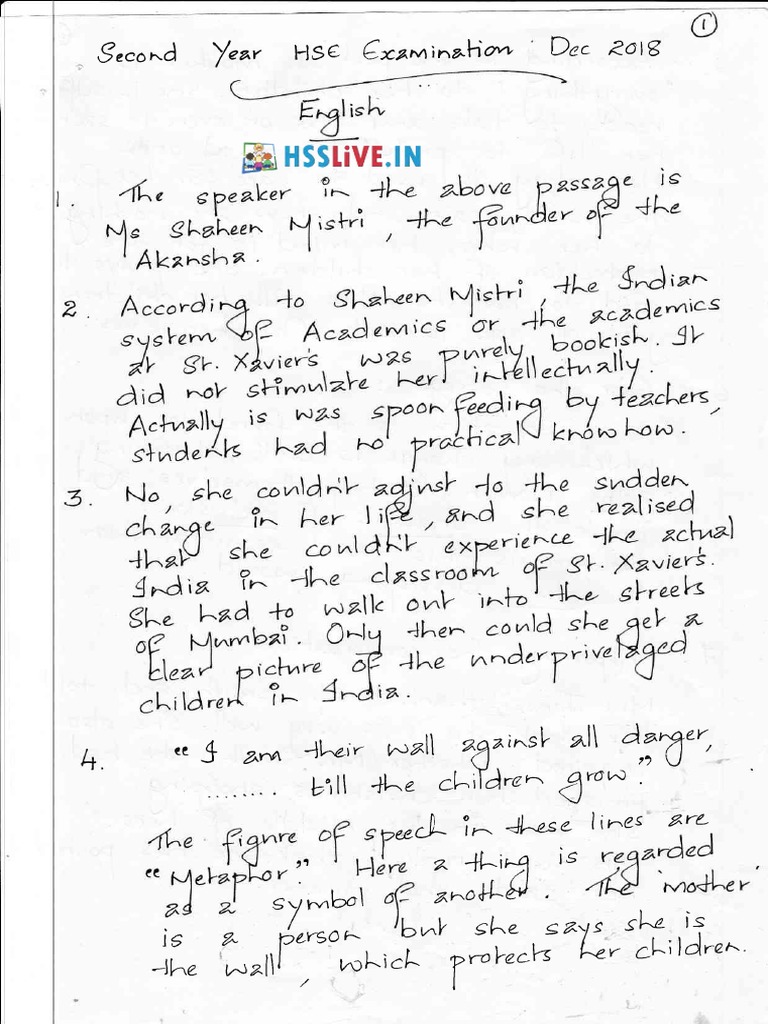 1
Second Year HSE Examination Dec 2018
English
HSSLiVE.IN
1. The speaker in the above passage is
Ms Shaheen Mistri, the founder of the
Akansha.
2. According to Shaheen Mistri, the Indian
system of Academics or the academics
at St. Xavier's was purely bookish. It
did not stimulate her intellectually.
Actually is was spoon feeding by teachers,
students had no practical knowhow.
3. No, she couldn't adjust to the sudden
change in her life, and she realised
that she couldn't experience the actual
India in the classroom of St. Xavier's.
She had to walk out into the streets
of Mumbai. Only then could she get a
clear picture of the underprivelaged
children in India.
4. "I am their wall against all danger,
........ till the children grow."
The figure of speech in these lines are
"Metaphor." Here a thing is regarded
as a symbol of another. The mother
is a person but she says she is
the wall, which protects her children.